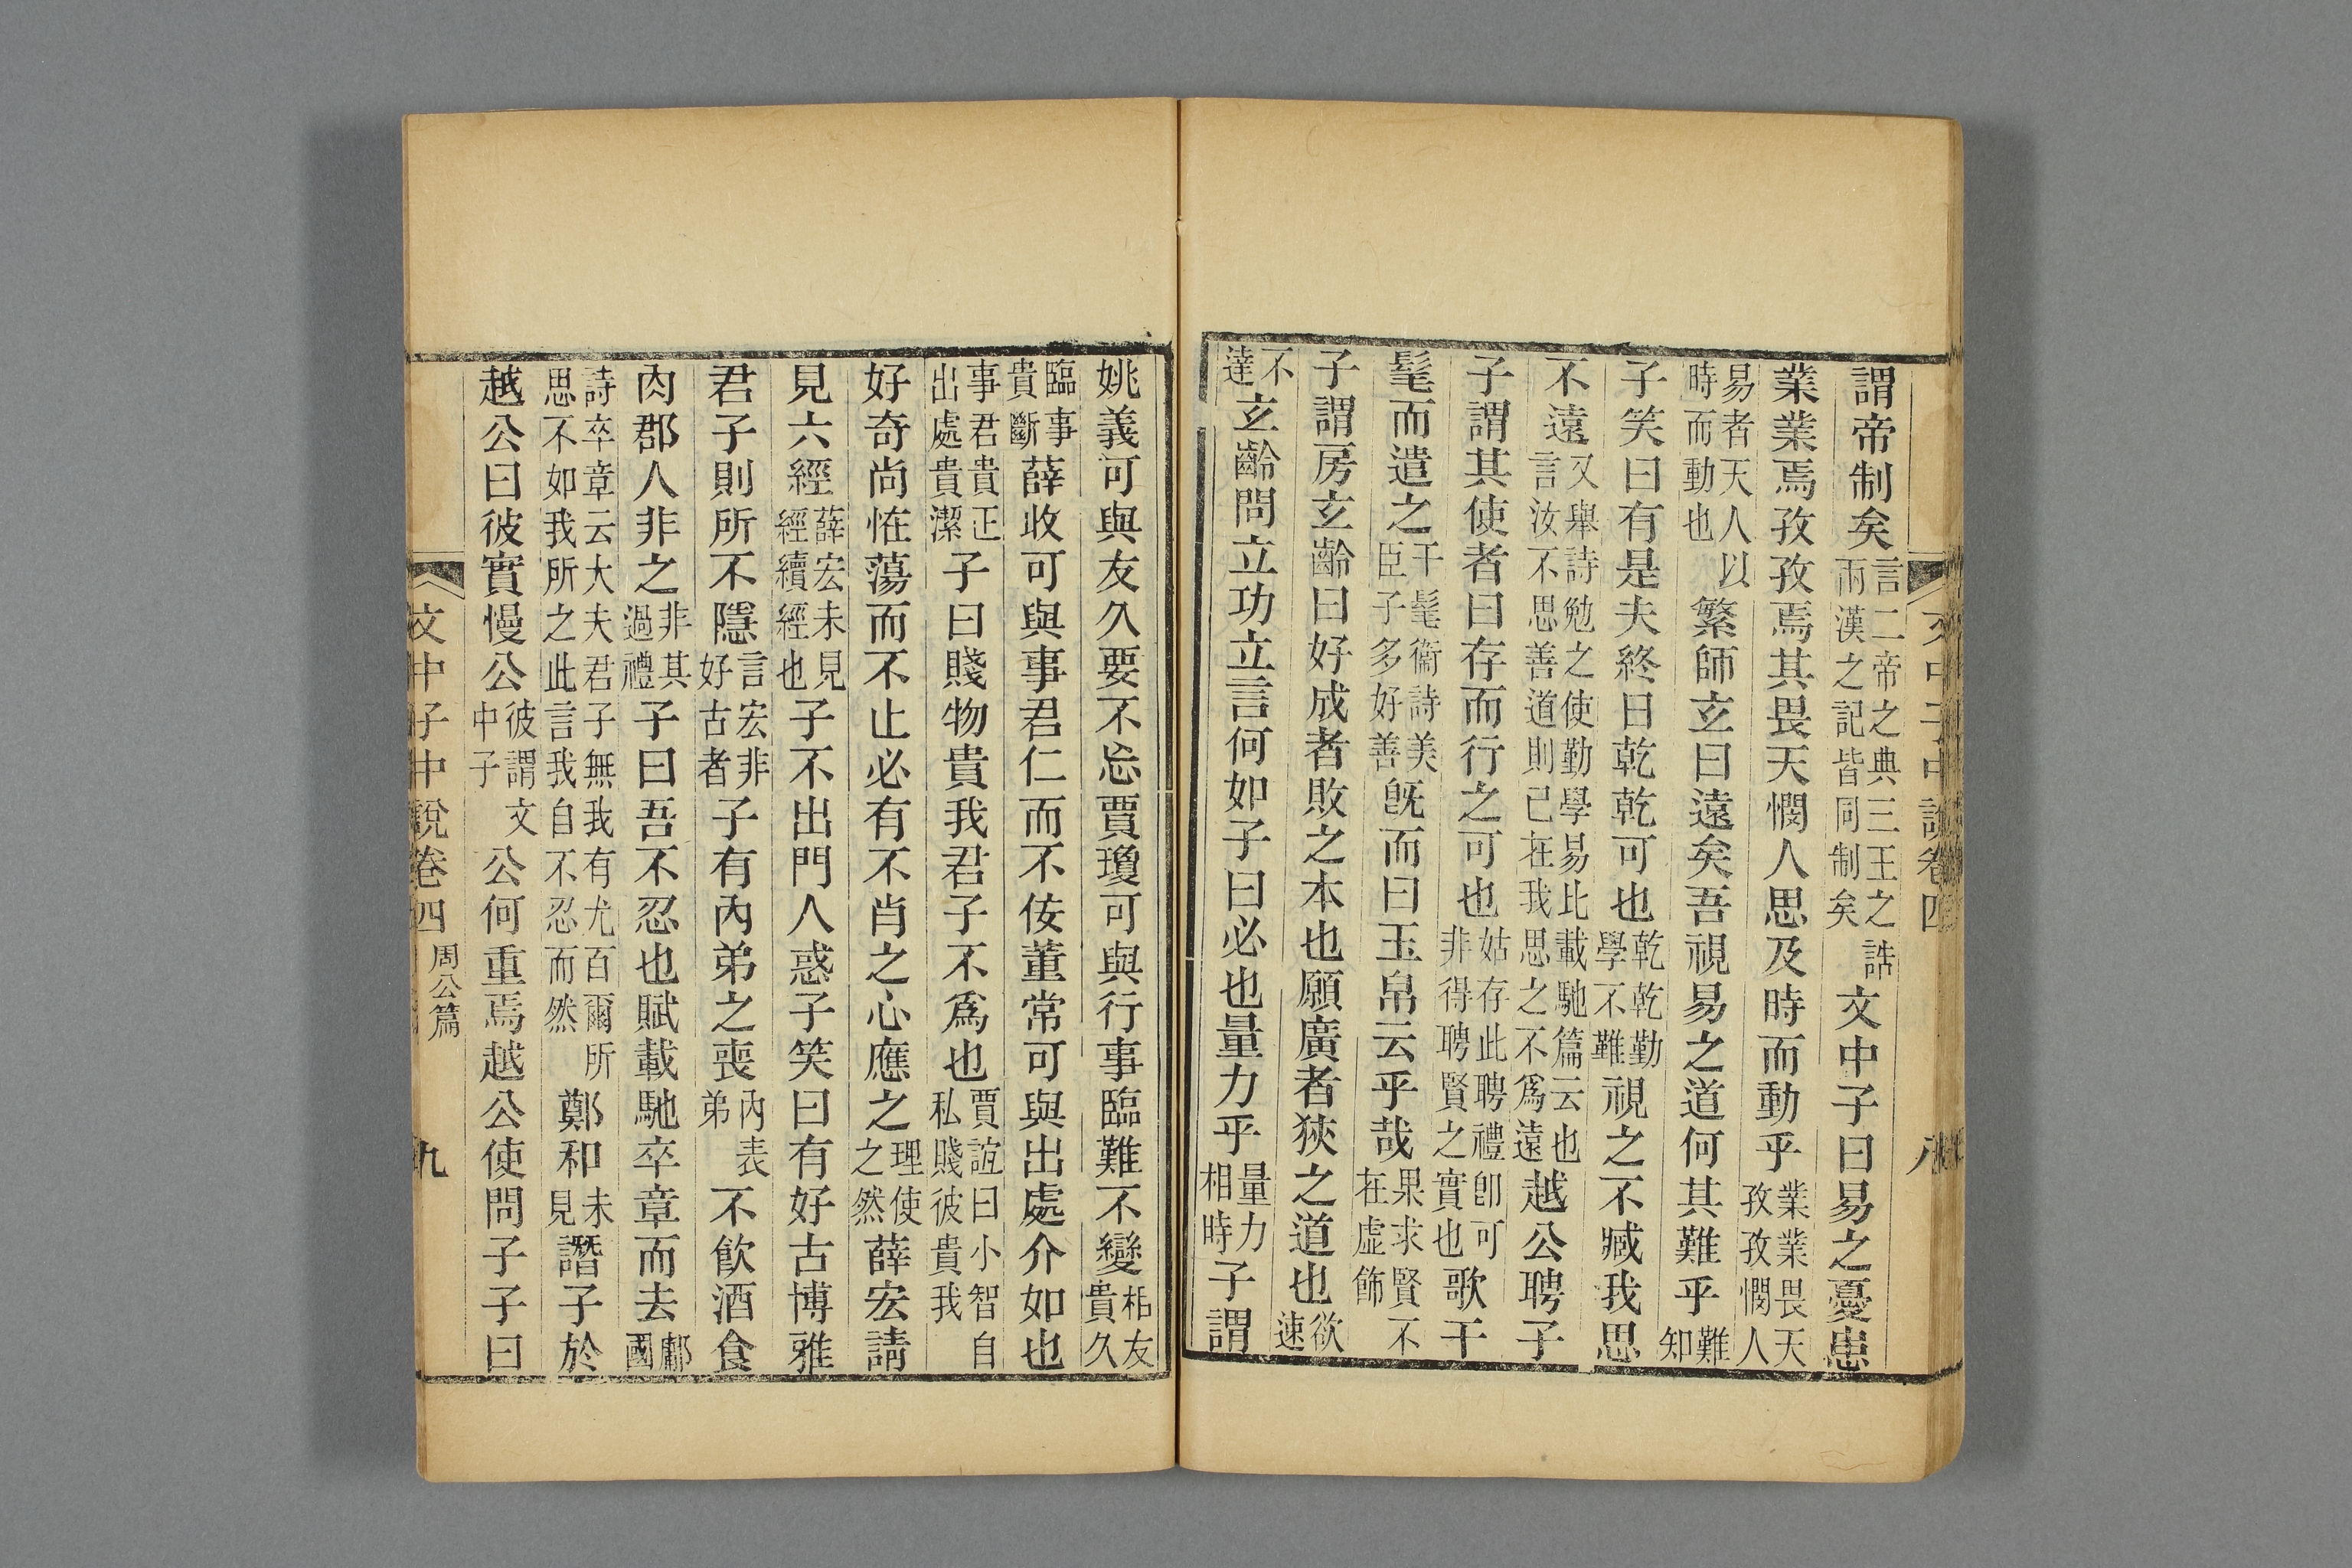 謂帝制矣言二帝之典三王之誥兩漢之記皆同制矣文中子曰易之憂患
業業焉孜孜焉其畏天憫人思及時而動乎業業畏天孜孜憫人
易者天人以時而動也繁師玄曰遠矣吾視易之道何其難乎難知
子笑曰有是夫終日乾乾可也乾乾勤學不難視之不臧我思
不遠又舉詩勉之使勤學易此載馳篇云也言汝不思善道則已在我思之不爲遠越公聘子
子謂其使者曰存而行之可也姑存此聘禮卽可非得聘賢之實也歌干
髦而遣之干髦衞詩美臣子多好善旣而曰玉帛云乎哉果求賢不在虛飾
子謂房玄齡曰好成者敗之本也願廣者狹之道也欲速
不達玄齡問立功立言何如子曰必也量力乎量力相時子謂
文中子中說卷四
八
姚義可與友久要不忘賈瓊可與行事臨難不變相友貴久
臨事貴斷薛收可與事君仁而不佞董常可與出處介如也
事君貴正出處貴潔子曰賤物貴我君子不爲也賈誼曰小智自私賤彼貴我
好奇尚恠蕩而不止必有不肖之心應之理使之然薛宏請
見六經薛宏未見經續經也子不出門人惑子笑曰有好古博雅
君子則所不隱言宏非好古者子有內弟之喪內表弟不飮酒食
肉郡人非之非其過禮子曰吾不忍也賦載馳卒章而去鄘國
詩卒章云大夫君子無我有尤百爾所思不如我所之此言我自不忍而然鄭和未見譖子於
越公曰彼實慢公彼謂文中子公何重焉越公使問子子曰
文中子中說卷四
周公篇
九